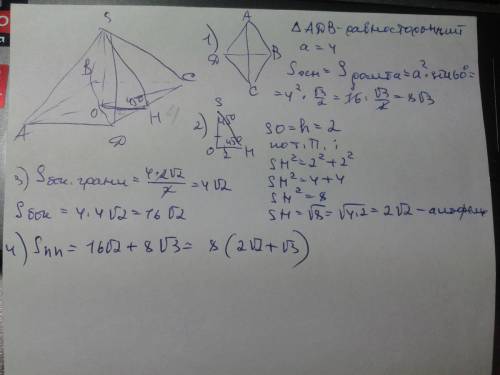 S
B
C
O
45°
H
4
A
D
1)
A
D
B
C
△ADB-равносторонний
a = 4
Sосн = Sромба = a² · sin60° =
= 4² · √3/2 = 16 · √3/2 = 8√3
2)
S
45°
45°
O 2 H
SO = h = 2
по т. П. :
SH² = 2² + 2²
SH² = 4 + 4
SH² = 8
SH = √8 = √4·2 = 2√2 -
3) Sбок. грани = 4·2√2/2 = 4√2
Sбок = 4·4√2 = 16√2
4) Sпп = 16√2 + 8√3 = 8(2√2 + √3)